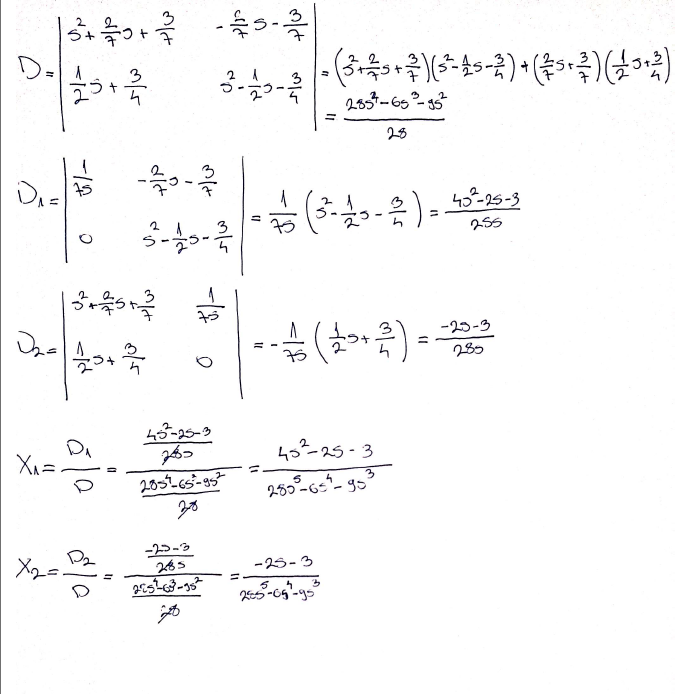 D = | s² + 2/7 s + 3/7    - 2/7 s - 3/7 |
| 1/2 s + 3/4    s² - 1/2 s - 3/4 | = (s² + 2/7 s + 3/7)(s² - 1/2 s - 3/4) + (2/7 s + 3/7)(1/2 s + 3/4)
= (28s⁴ - 6s³ - 9s²)/28
D₁ = | 1/7s    - 2/7 s - 3/7 |
| 0    s² - 1/2 s - 3/4 | = 1/7s (s² - 1/2 s - 3/4) = (4s² - 2s - 3)/28s
D₂ = | s² + 2/7 s + 3/7    1/7s |
| 1/2 s + 3/4    0 | = - 1/7s (1/2 s + 3/4) = (-2s - 3)/28s
X₁ = D₁/D = ((4s² - 2s - 3)/28s)/((28s⁴ - 6s³ - 9s²)/28) = (4s² - 2s - 3)/(28s⁵ - 6s⁴ - 9s³)
X₂ = D₂/D = ((-2s - 3)/28s)/((28s⁴ - 6s³ - 9s²)/28) = (-2s - 3)/(28s⁵ - 6s⁴ - 9s³)